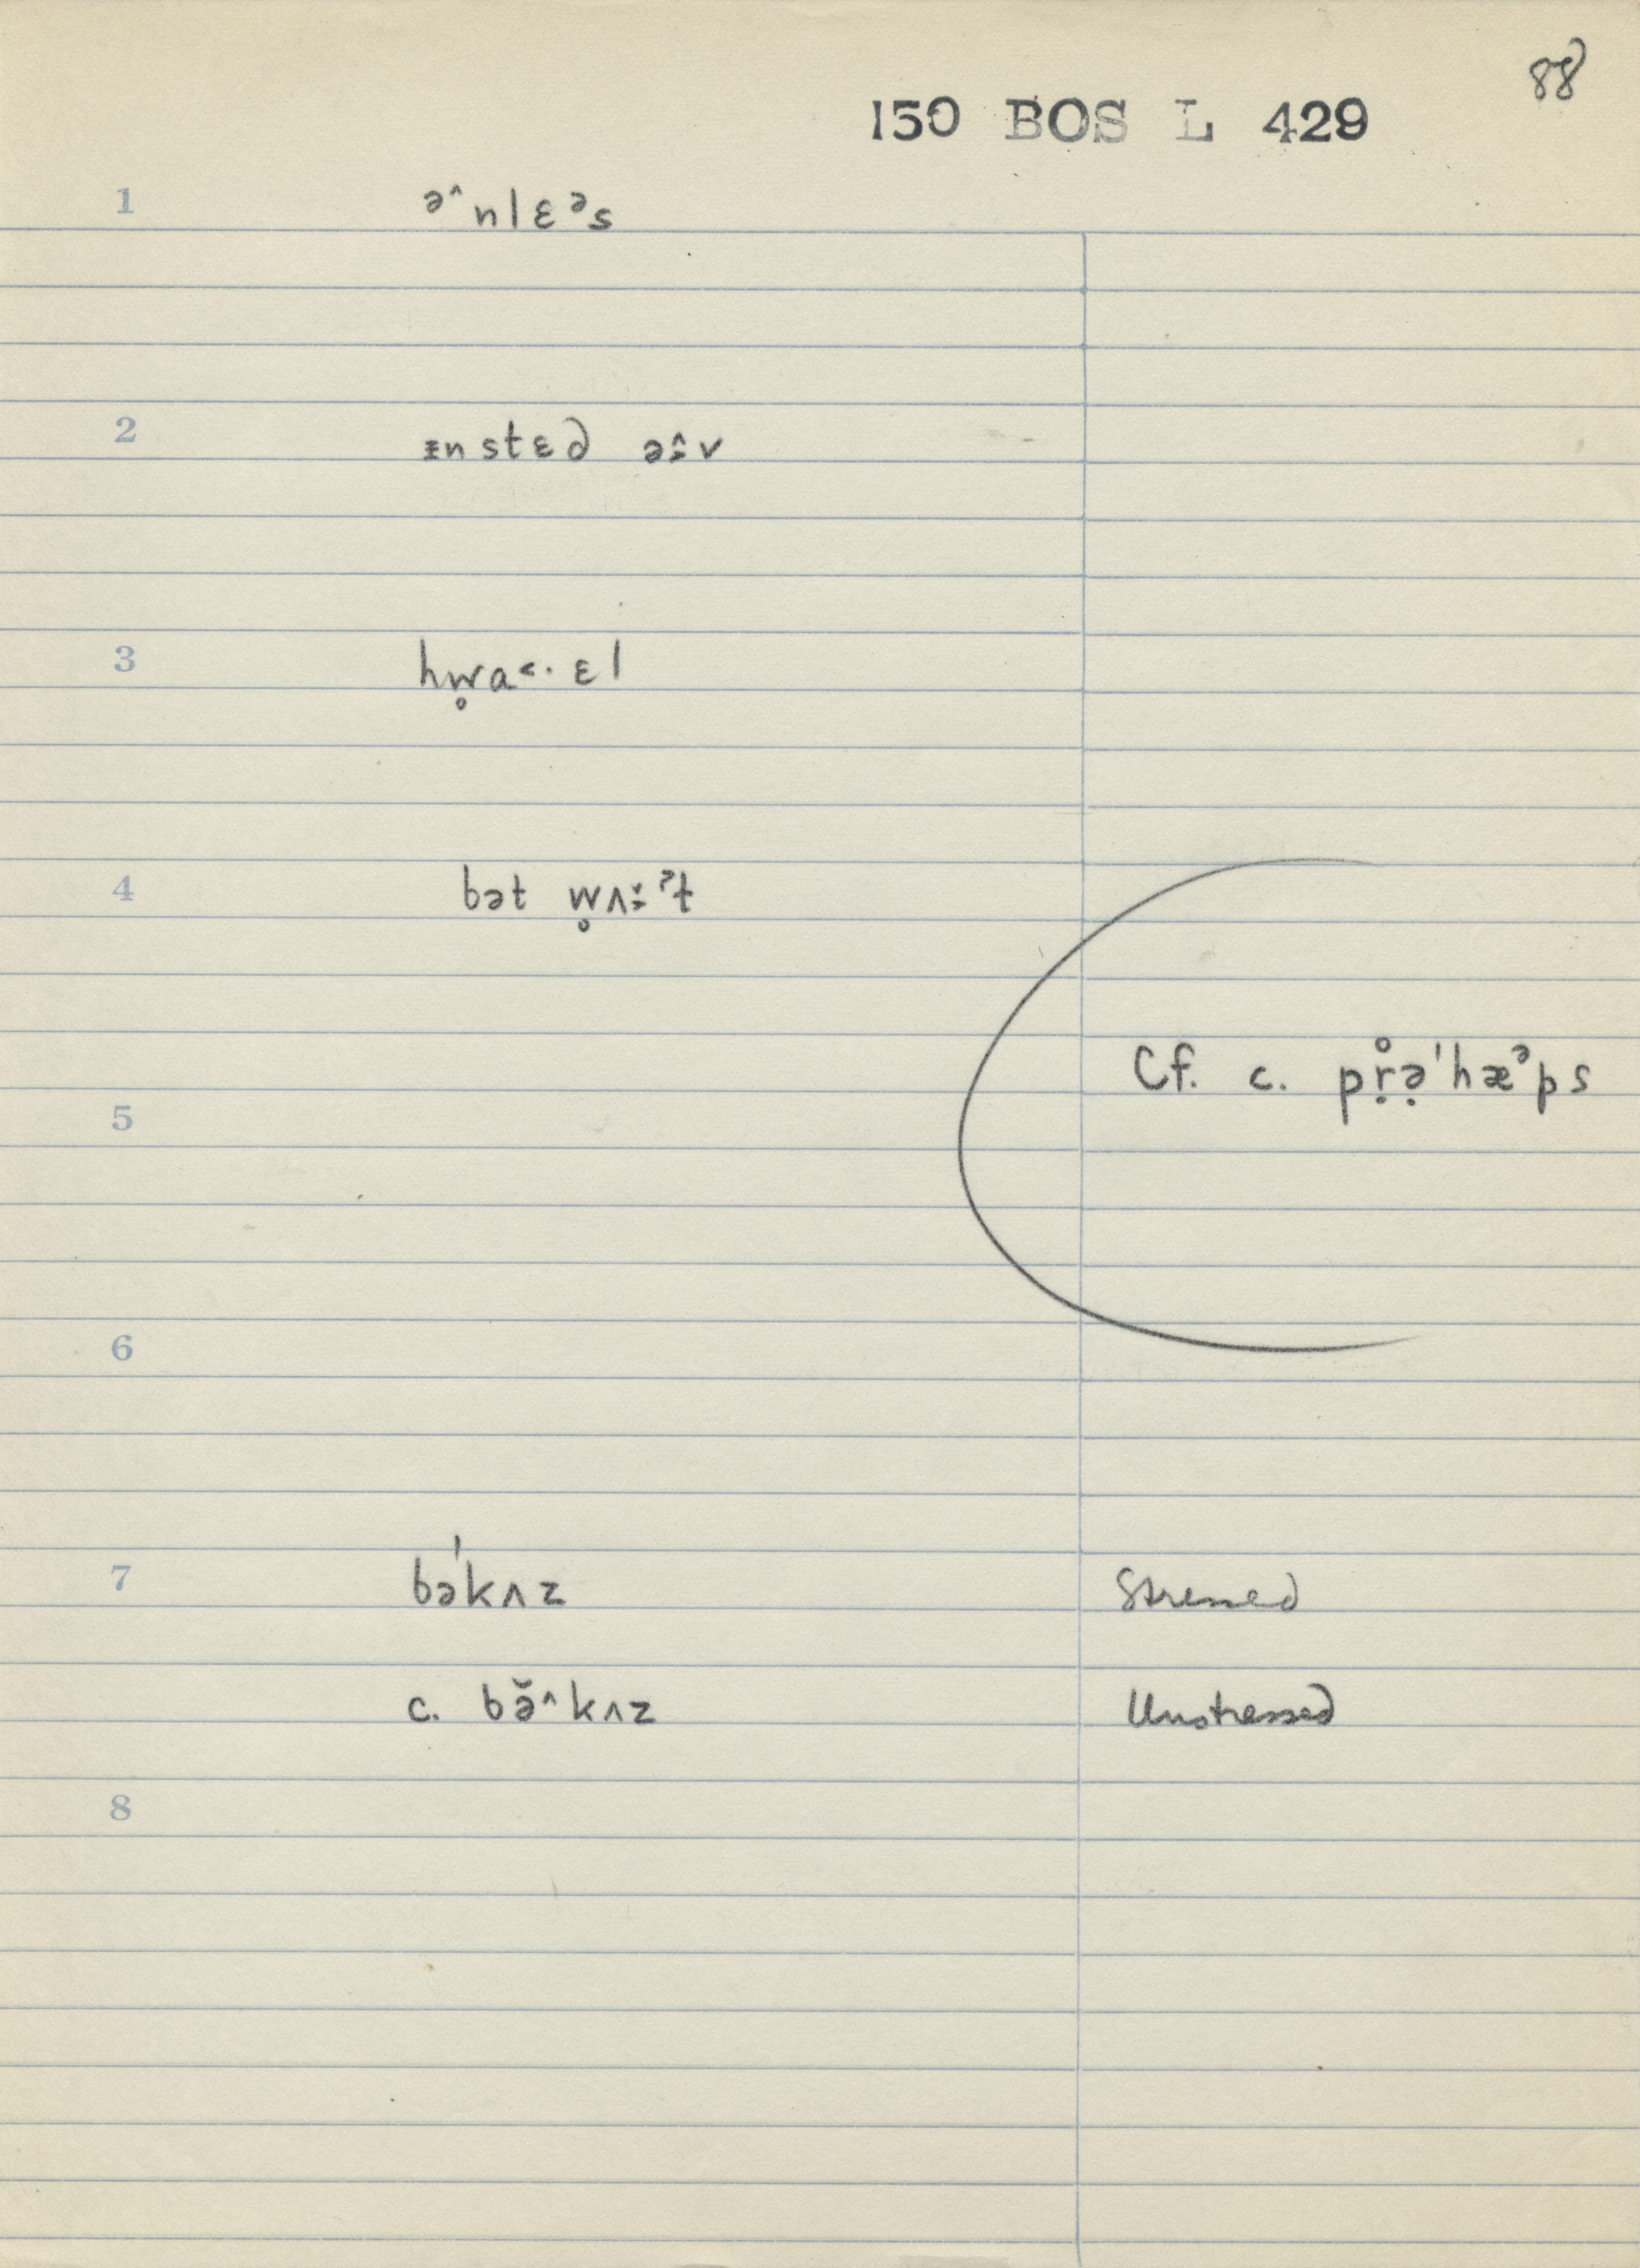 88
150 BOS L 429
1 ə˄nlɛᵊs
2 ɪnstɛd ə˔˄v
3 hw̥a˂·ɛl
4 bət w̥ʌ˔˅ˀt
Cf. c. pr̥̣ə̣ˈhæᵊps
5
6
7 bəˈkʌz Stressed
c. bə̆˄kʌz Unstressed
8